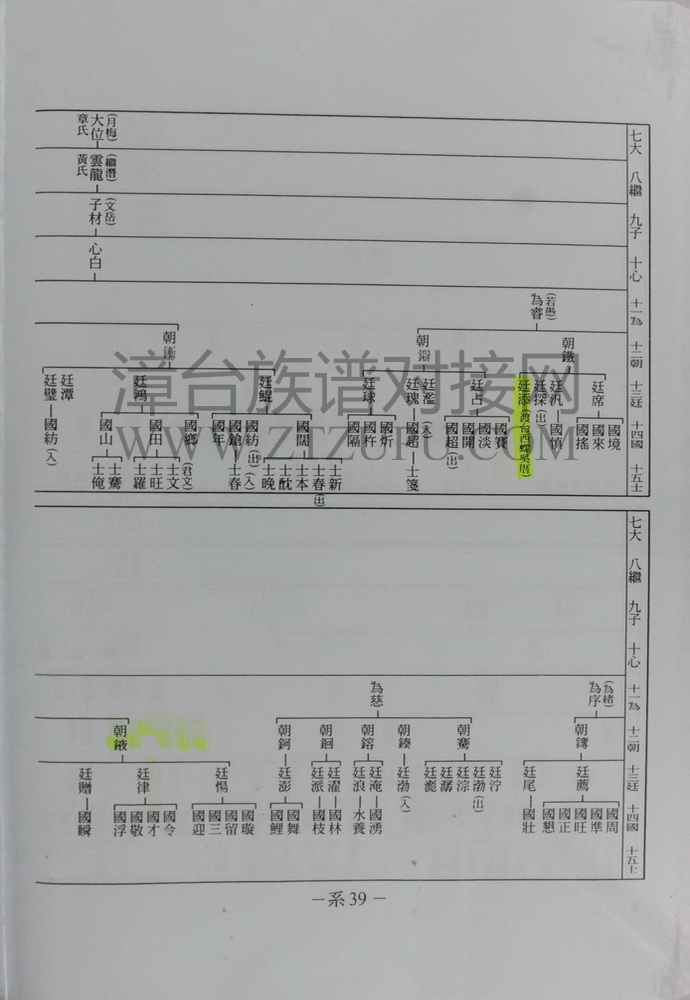 七大 八繼 九子 十心 十一為 十二朝 十三廷 十四國 十五士
(月梅)
大位
章氏
(繼潛)
雲龍
黃氏
(文岳)
子材
心白
(若愚)
為睿
朝鐵
廷席
國境
國來
國搖
廷汎
國慎
廷探(出)
廷添(渡台西螺吳厝)
廷占
國賽
國淡
國開
國超(出)
廷濫(入)
廷瑰
國超
士箋
廷球
國炘
國杵
國隔
廷鯤
國闊
士新
士春(出)
士本
士酖
士晚
國紡(出)(入)
國鎗
士春
國年
廷鴻
國鄉
國田
士文(君文)
士旺
士羅
國山
士騫
士俺
廷潭
廷璧
國紡(入)
漳台族谱对接网
WWW.ZTZUPU.COM
七大 八繼 九子 十心 十一為 十二朝 十三廷 十四國 十五士
(為緒)
為序
廷薦
國周
國準
國旺
國正
國懇
廷尾
國壯
為慈
朝騫
廷泞
廷渤(出)
廷淙
廷潺
廷滮
朝鏤
廷渤(入)
朝鎔
廷淹
國湧
廷浪
水養
朝鉰
廷濯
國林
廷派
國枝
朝鈳
廷澎
國舞
國鯉
廷惕
國璇
國留
國三
國迎
廷律
國令
國才
國敬
國浮
廷贈
國瞬
－系 39－